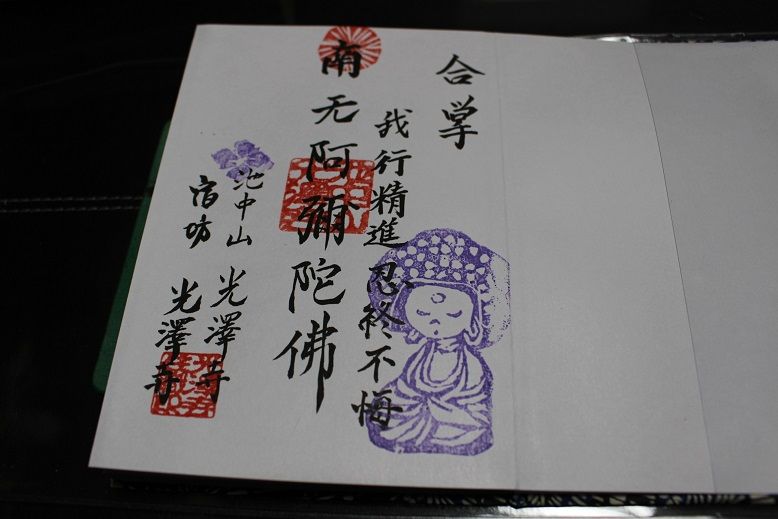 合掌
我行精進 忍終不悔
南无阿彌陀佛
池中山 光澤寺
宿坊 光澤寺